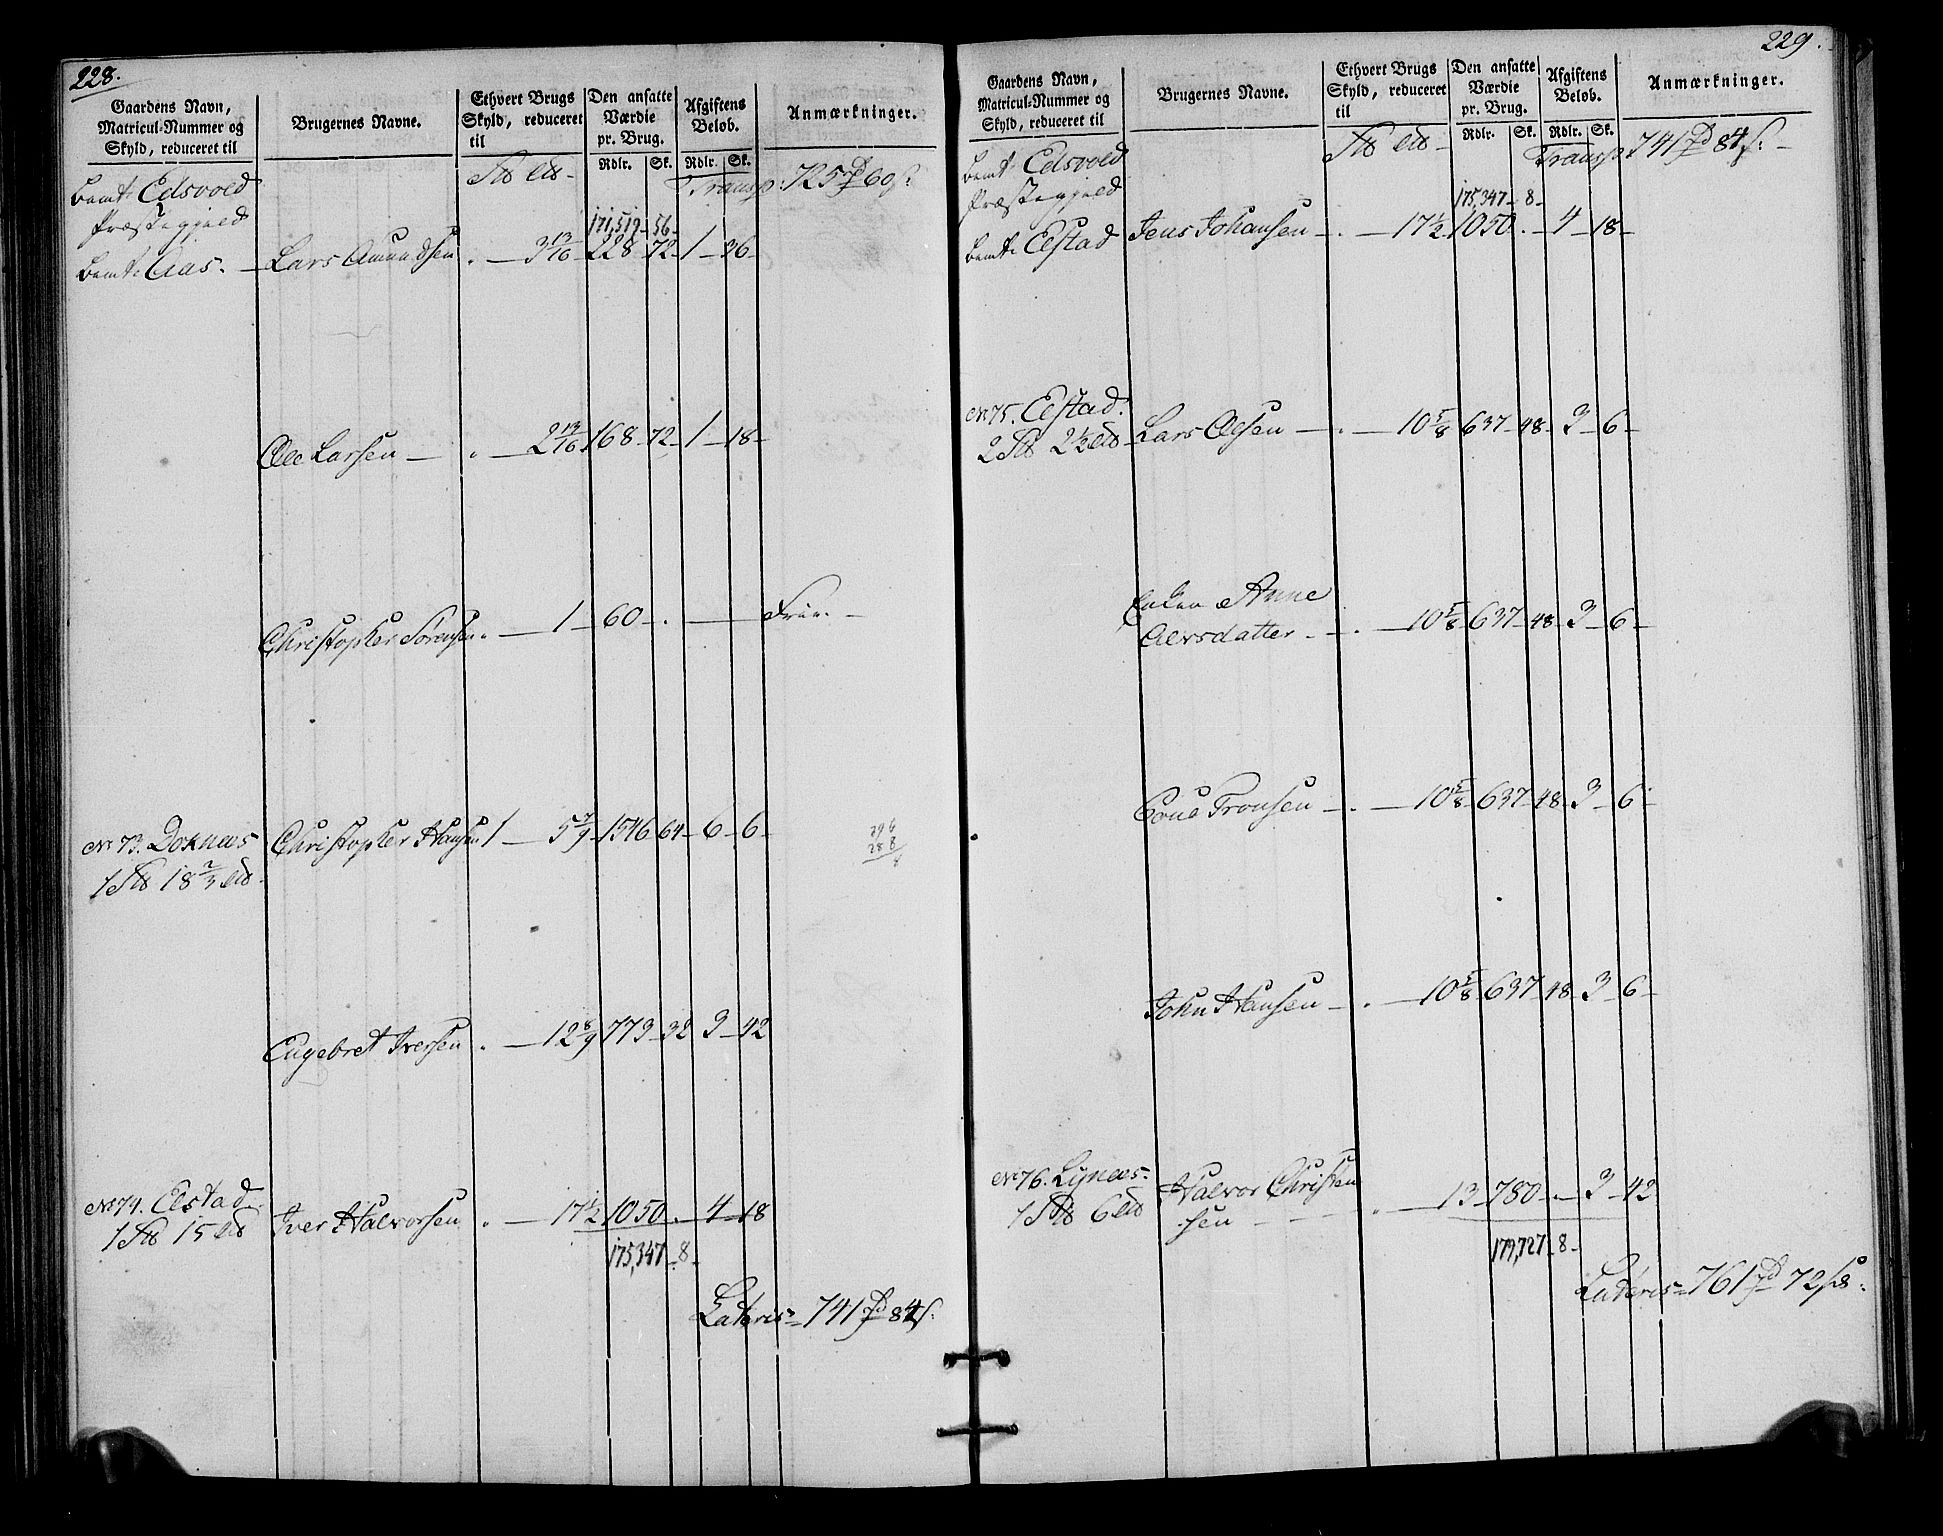 228.
Gaardens Navn,
Matricul-Nummer og
Skyld, reduceret til
Brugernes Navne.
Ethvert Brugs
Skyld, reduceret
til
Den ansatte
Værdie
pr. Brug.
Rdlr. Sk.
Afgiftens
Beløb.
Rdlr. Sk.
Anmærkninger.
Transp: 725 60
bemt: Edsvold
Præstegjeld
171,519 - 56 -
bemt: Aas. - Lars Amundsen . - 3 13/16 228 - 72 - 1 - 36 -
Ole Larsen - . - 2 13/16 168 - 72 - 1 - 18 -
Christopher Sørensen . - 1 - 60 - . - Frie. -
No 73. Doknæs Christopher Hansen 1 - 5 7/9 - 1546 - 64 - 6 - 6 -
1 18 2/3
296
288
8
Engebret Iversen . - 12 8/9 773 - 32 3 - 42
No 74. Elstad Iver Halvorsen . - 17 1/2 1050 . - 4 - 18
1 15
175,347 - 8 -
Lateris = 741 84
229.
Gaardens Navn,
Matricul-Nummer og
Skyld, reduceret til
Brugernes Navne.
Ethvert Brugs
Skyld, reduceret
til
Den ansatte
Værdie
pr. Brug.
Rdlr. Sk.
Afgiftens
Beløb.
Rdlr. Sk.
Anmærkninger.
Transp 741 84
bemt: Edsvold
Præstegjeld
175,347 - 8 -
bemt: Elstad Jens Johansen - . - 17 1/2 1050 . - 4 - 18 -
No 75. Elstad. Lars Olsen - . - 10 5/8 637 - 48 - 3 - 6 -
2 2 1/2
Enken Anne
Olersdatter - . - 10 5/8 637 - 48 - 3 - 6 -
Poul Tronsen - . - 10 5/8 - 637 - 48 - 3 - 6 -
John Hansen - . - 10 5/8 637 - 48 - 3 - 6 -
No 76. Lynæs - Halvor Christen
1 6 sen - . - 13 - 780 - . - 3 - 42
179,727 - 8 -
Lateris = 761 72